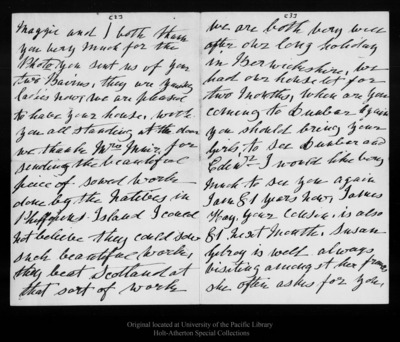 Maggie and I both thank
you very much for the
Photo you sent us of your
two Bairns, they are young
ladies now, we are pleased
to have your house, with
you all standing at the door
we thank Mrs Muir, for
sending the beautiful
piece of sowed work
done by the Natives in
Phillipines Island I could
not believe they could sow
such beautiful work,
they beat Scotland at
that sort of work
we are both very well
after our long holiday
in Berwickshire, we
had our house let for
two months, when are you
coming to Dunbar again
you should bring your
girls, to see Dunbar and
Edinr. I would like very
much to see you again
I am 81 years now, James
Hay, your cousin, is also
81 next month, Susan
Gilroy is well always
visiting amongst her friends
she often asks for you,
Original located at University of the Pacific Library
Holt-Atherton Special Collections